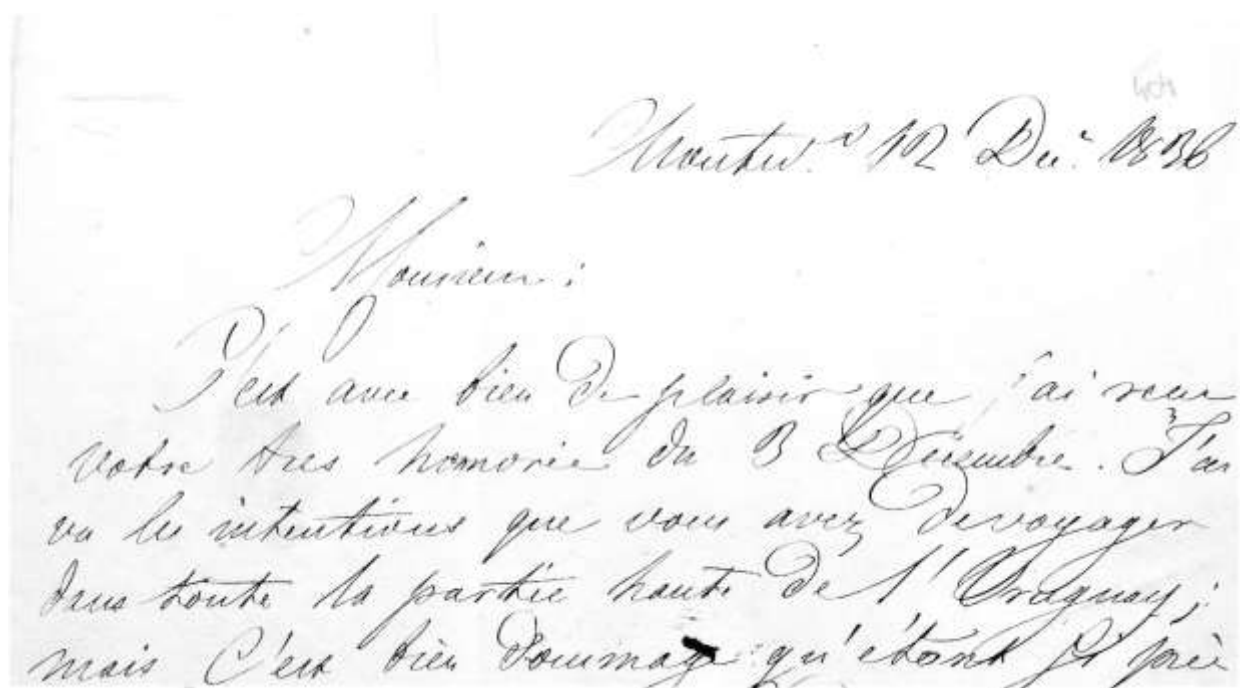 Montev.º 12 Dec.e 1836
Monsieur :
C'est avec bien de plaisir que j'ai recu
votre tres honnorée du 3 Decembre. J'ai
vu les intentions que vous avez de voyager
dans toute la partie haute de l'Uruguay ;
mais C'est bien dommage qu'étant si près